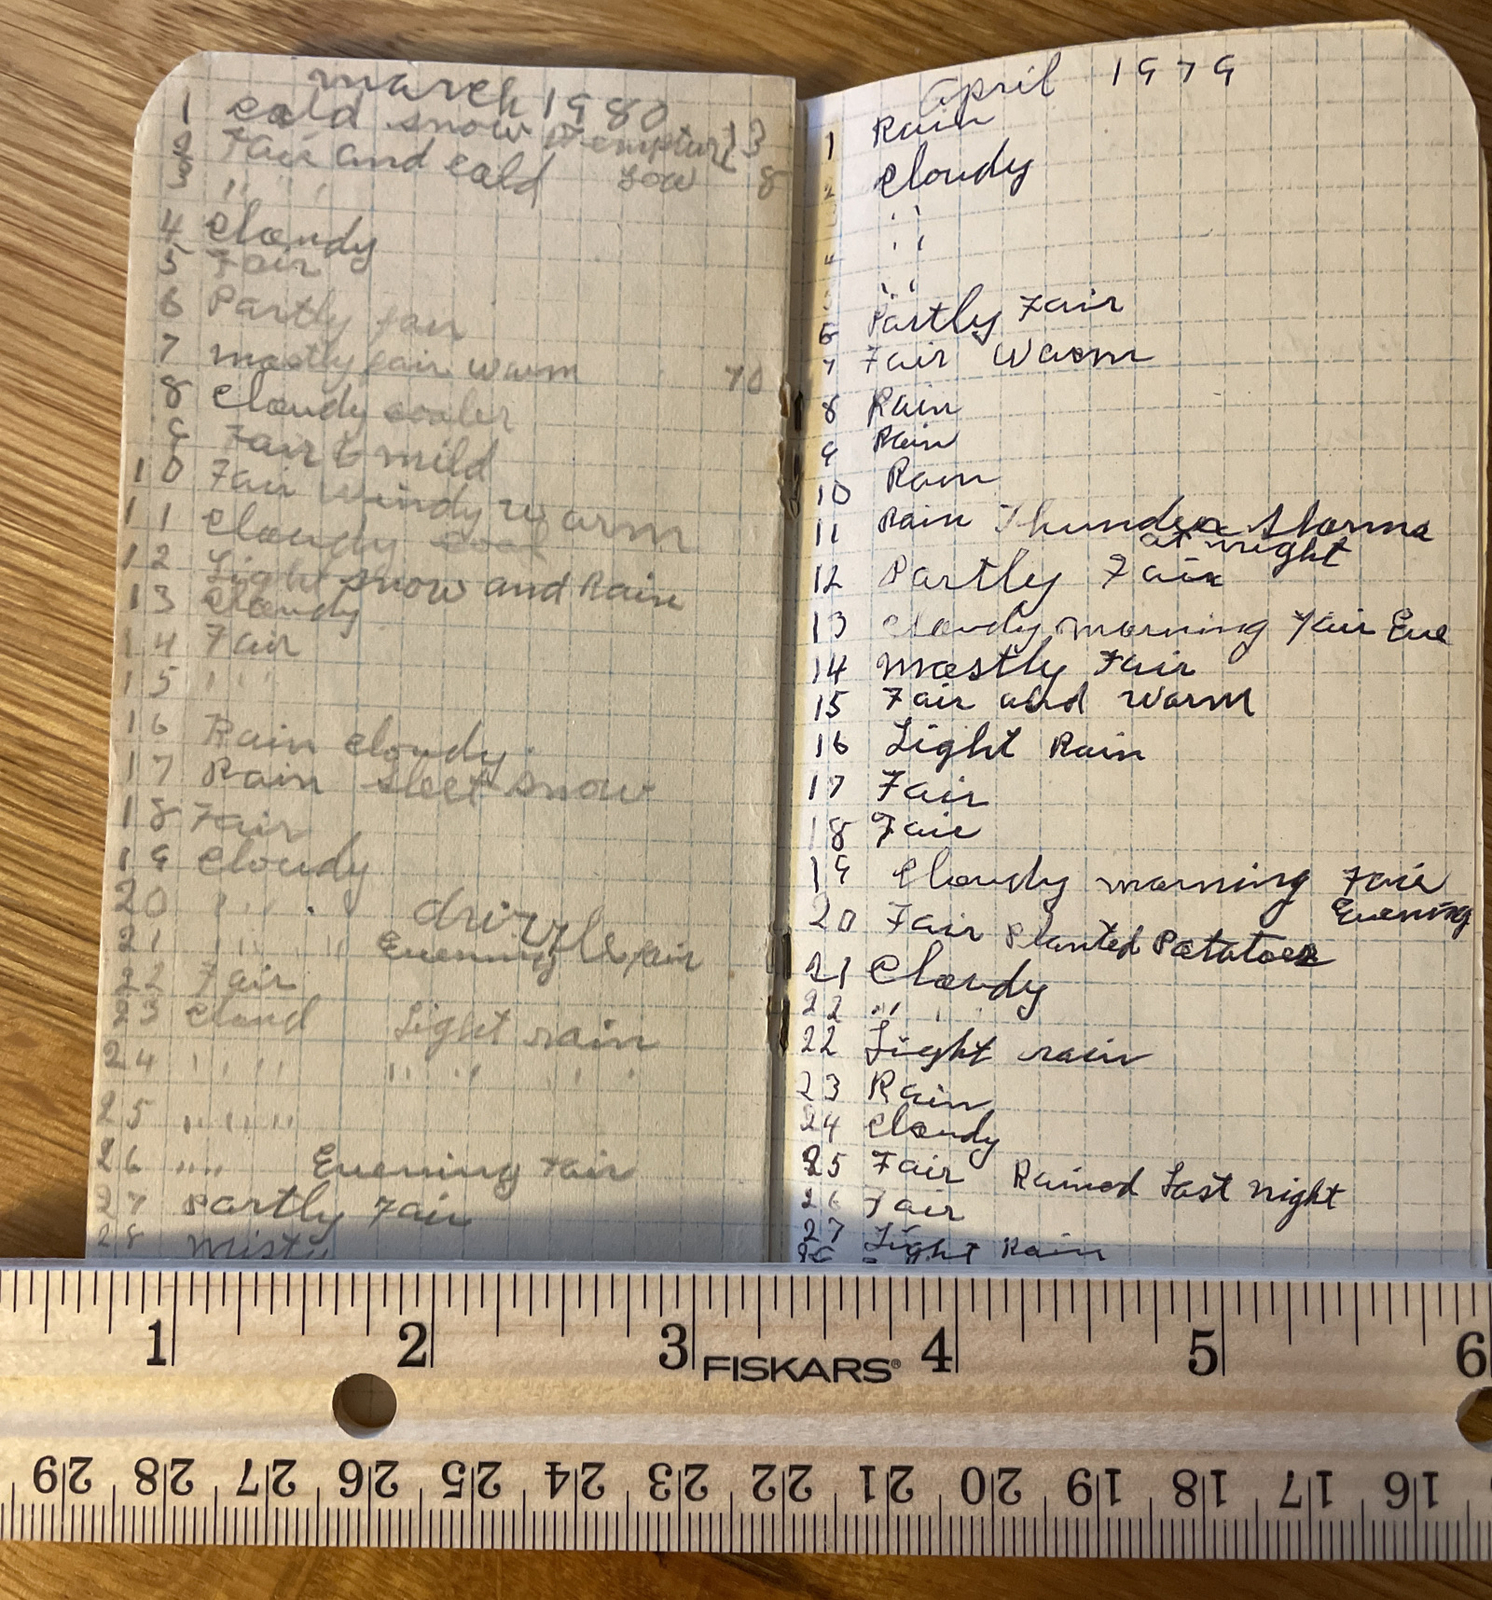 march 1980
1 cold snow Temptur 13
2 Fair and cold Low 8
3 " " "
4 Cloudy
5 Fair
6 Partly fair
7 mostly fair warm 70
8 Cloudy cooler
9 Fair & mild
10 Fair windy warm
11 Cloudy cool
12 Light snow and Rain
13 Cloudy
14 Fair
15 " "
16 Rain cloudy
17 Rain sleet snow
18 Fair
19 Cloudy
20 " " drizzle
21 " " " Evening fair
22 Fair
23 Cloud Light rain
24 " " " " " "
25 " " " "
26 " " Evening Fair
27 Partly Fair
28 Misty
April 1979
1 Rain
2 Cloudy
3 " "
4
5 " "
6 Partly Fair
7 Fair Warm
8 Rain
9 Rain
10 Rain
11 Rain Thunder Storms
at night
12 Partly Fair
13 Cloudy morning Fair Eve
14 Mostly Fair
15 Fair and warm
16 Light Rain
17 Fair
18 Fair
19 Cloudy morning Fair
Evening
20 Fair Planted Potatoes
21 Cloudy
22 " "
22 Light rain
23 Rain
24 Cloudy
25 Fair Rained Last night
26 Fair
27 Light Rain
1 2 3 FISKARS® 4 5 6
29 28 27 26 25 24 23 22 21 20 19 18 17 16